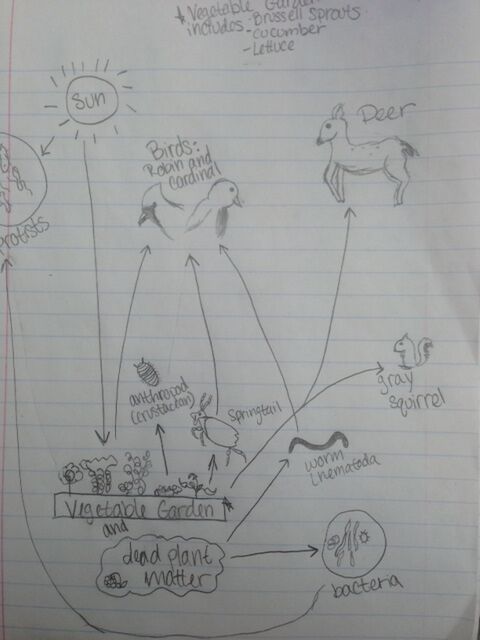 * Vegetable Garden
includes - Brussell Sprouts
- Cucumber
- Lettuce
Sun
Deer
Birds:
Robin and
Cardinal
Protists
anthropod
(crustacean)
Springtail
gray
squirrel
worm
(nematoda
Vegetable Garden *
and
dead plant
matter
bacteria